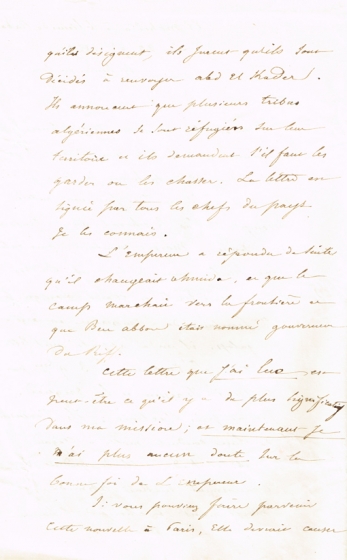 qu'ils désignent, ils jurent qu'ils sont
Décidés à renvoyer abd El Kader.
Ils annoncent que plusieurs tribus
algériennes se sont réfugiées sur leur
territoire et ils demandent s'il faut les
garder ou les chasser. La lettre est
signée par tous les chefs du pays
Je les connais.
L'Empereur a répondu de suite
qu'il changeait ahmida, et que le
camp marchait vers la frontière et
que Ben abbou était nommé gouverneur
Du Rif.
Cette lettre que j'ai lue est
peut-être ce qu'il y a de plus significatif
Dans ma mission; et maintenant Je
n'ai plus aucun doute sur la
bonne foi de L'empereur.
Si vous pouvez faire parvenir
Cette nouvelle à Paris, Elle devrait causer